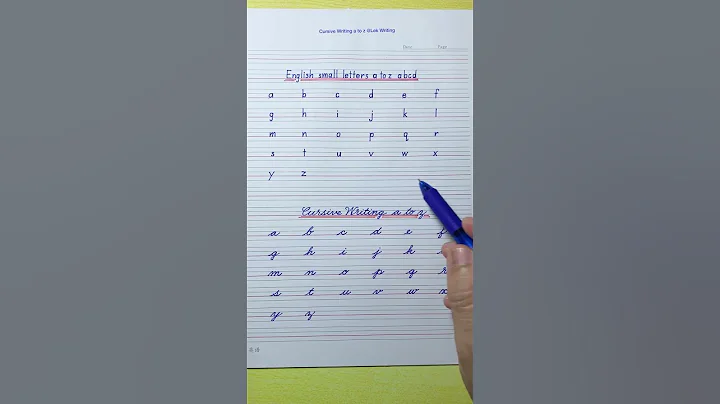 Cursive Writing a to z @Lek Writing
Date Page
English small letters a to z abcd
a b c d e f
g h i j k l
m n o p q r
s t u v w x
y z
Cursive Writing a to z
a b c d e f
g h i j k
m n o p q r
s t u v w x
y z